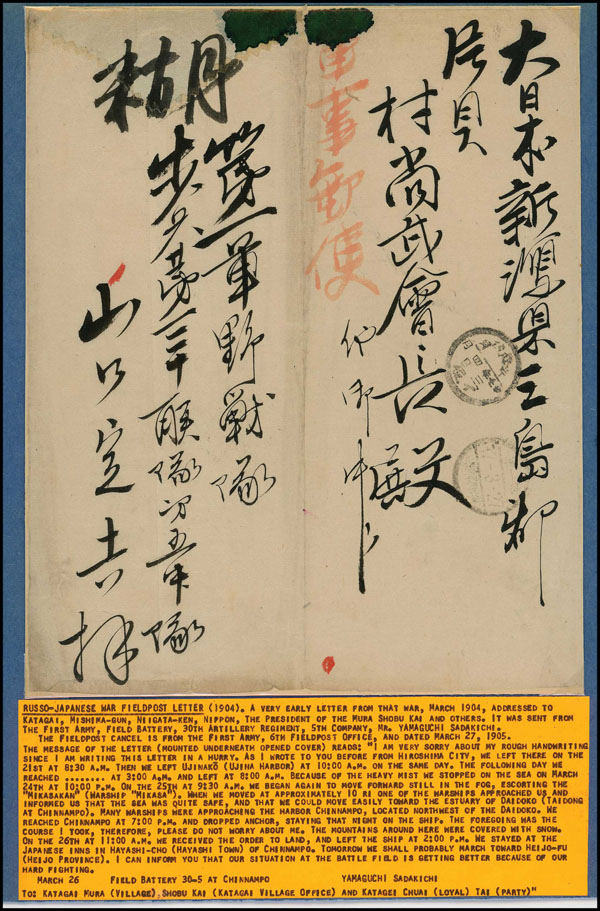 大日本新潟県三島郡
片貝
村尚武會々長殿
他御中
軍事郵便
糊
第一軍野戦隊
歩兵第三十聯隊第五中隊
山口定吉拝
RUSSO-JAPANESE WAR FIELDPOST LETTER (1904). A VERY EARLY LETTER FROM THAT WAR, MARCH 1904, ADDRESSED TO
KATAGAI, MISHIMA-GUN, NIIGATA-KEN, NIPPON, THE PRESIDENT OF THE MURA SHOBU KAI AND OTHERS. IT WAS SENT FROM
THE FIRST ARMY, FIELD BATTERY, 30TH ARTILLERY REGIMENT, 5TH COMPANY, MR. YAMAGUCHI SADAKICHI.
THE FIELDPOST CANCEL IS FROM THE FIRST ARMY, 6TH FIELDPOST OFFICE, AND DATED MARCH 27, 1905.
THE MESSAGE OF THE LETTER (MOUNTED UNDERNEATH OPENED COVER) READS: "I AM VERY SORRY ABOUT MY ROUGH HANDWRITING
SINCE I AM WRITING THIS LETTER IN A HURRY. AS I WROTE TO YOU BEFORE FROM HIROSHIMA CITY, WE LEFT THERE ON THE
21ST AT 8:30 A.M. THEN WE LEFT UJINAKŌ (UJINA HARBOR) AT 10:00 A.M. ON THE SAME DAY. THE FOLLOWING DAY WE
REACHED ........ AT 3:00 A.M. AND LEFT AT 8:00 A.M. BECAUSE OF THE HEAVY MIST WE STOPPED ON THE SEA ON MARCH
24TH AT 10:00 P.M. ON THE 25TH AT 9:30 A.M. WE BEGAN AGAIN TO MOVE FORWARD STILL IN THE FOG, ESCORTING THE
"MIKASAKAN" (WARSHIP "MIKASA"). WHEN WE MOVED AT APPROXIMATELY 10 RI ONE OF THE WARSHIPS APPROACHED US AND
INFORMED US THAT THE SEA WAS QUITE SAFE, AND THAT WE COULD MOVE EASILY TOWARD THE ESTUARY OF DAIDOKO (TAIDONG
AT CHINNAMPO). MANY WARSHIPS WERE APPROACHING THE HARBOR CHINNAMPO, LOCATED NORTHWEST OF THE DAIDOKO. WE
REACHED CHINNAMPO AT 7:00 P.M. AND DROPPED ANCHOR, STAYING THAT NIGHT ON THE SHIP. THE FOREGOING WAS THE
COURSE I TOOK, THEREFORE, PLEASE DO NOT WORRY ABOUT ME. THE MOUNTAINS AROUND HERE WERE COVERED WITH SNOW.
ON THE 26TH AT 11:00 A.M. WE RECEIVED THE ORDER TO LAND, AND LEFT THE SHIP AT 2:00 P.M. WE STAYED AT THE
JAPANESE INNS IN HAYASHI-CHO (HAYASHI TOWN) OF CHINNAMPO. TOMORROW WE SHALL PROBABLY MARCH TOWARD HEIJO-FU
(HEIJO PROVINCE). I CAN INFORM YOU THAT OUR SITUATION AT THE BATTLE FIELD IS GETTING BETTER BECAUSE OF OUR
HARD FIGHTING.
MARCH 26 FIELD BATTERY 30-5 AT CHINNAMPO YAMAGUCHI SADAKICHI
TO: KATAGAI MURA (VILLAGE), SHOBU KAI (KATAGAI VILLAGE OFFICE) AND KATAGEI CHUAI (LOYAL) TAI (PARTY)"